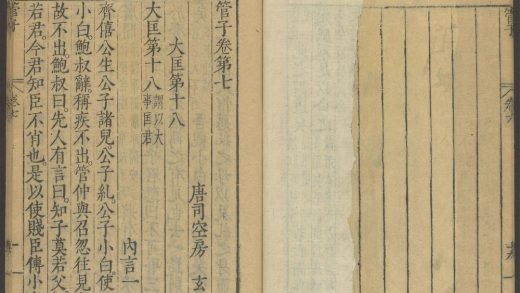 管子
卷六
管子卷第七
唐司空房 玄
大匡第十八
大匡第十八 謂以大事匡君
內言一
齊僖公生公子諸兒公子糺公子小白使
小白鮑叔辭稱疾不出管仲與召忽往見
故不出鮑叔曰先人有言曰知子莫若父
若君今君知臣不肖也是以使賤臣傅小
管子
卷七